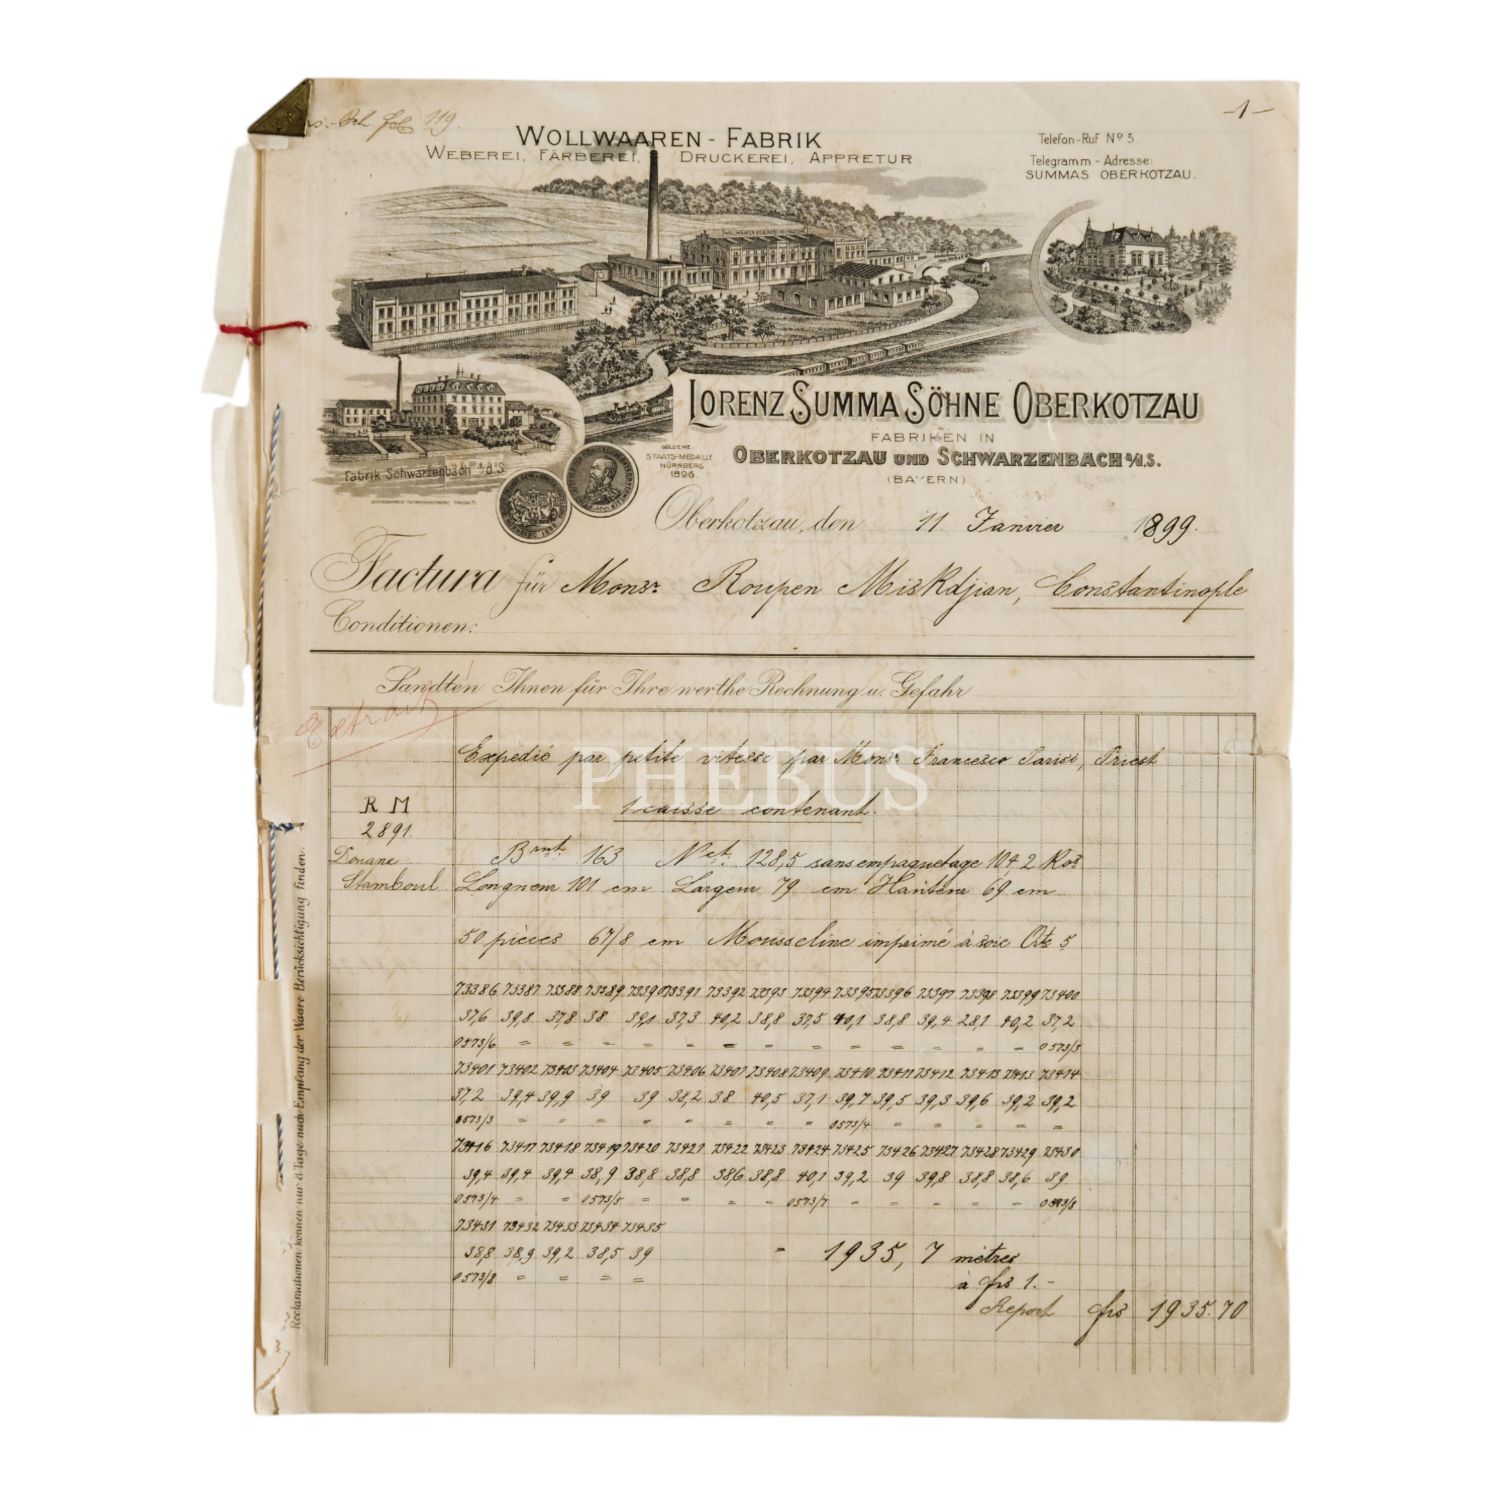 119.
-1-
WOLLWAAREN - FABRIK
WEBEREI, FÄRBEREI, DRUCKEREI, APPRETUR.
Telefon-Ruf Nº 5.
Telegramm - Adresse:
SUMMAS OBERKOTZAU.
LORENZ SUMMA SÖHNE OBERKOTZAU
FABRIKEN IN
OBERKOTZAU UND SCHWARZENBACH a/d.S.
(BAYERN)
Fabrik Schwarzenbach a/d S.
GOLDENE
STAATS-MEDAILLE
NÜRNBERG
1896.
Oberkotzau, den 11 Janvier 1899.
Factura für Monsr. Roupen Miskdjian, Constantinople
Conditionen:
Sandten Ihnen für Ihre werthe Rechnung u. Gefahr
Extrait
PHEBUS
Expédié par petite vitesse par Monsr. Francesco Parisi, Triest
R M
2891.
Douane
Stamboul
1 caisse contenant.
Brut. 163 Net. 128,5 sans empaquetage 104,2 Kos
Longueur 101 cm Largeur 79 cm Hauteur 69 cm
50 pièces 67/8 cm Mousseline imprimé à soie Qté 5
73386 73387 73388 73389 73390 73391 73392 73393 73394 73395 73396 73397 73398 73399 73400
37,6 39,8 37,8 38 39,1 37,3 40,2 38,8 37,5 40,1 38,8 39,4 28,1 40,2 37,2
0573/6 = = = = = = = = = = = = = 0573/3
73401 73402 73403 73404 73405 73406 73407 73408 73409 73410 73411 73412 73413 73413 73414
37,2 39,4 39,9 39 39 38,2 38 40,5 37,1 39,7 39,5 39,3 39,6 39,2 39,2
0573/3 = = = = = = = = 0573/4 = = = = =
73416 73417 73418 73419 73420 73421 73422 73423 73424 73425 73426 73427 73428 73429 73430
39,4 39,4 39,4 38,9 38,8 38,8 38,6 38,8 40,1 39,2 39 39,8 38,8 38,6 39
0573/4 = = 0573/5 = = = = 0573/7 = = = = = 0573/8
73431 73432 73433 73434 73435
38,8 38,9 39,2 38,5 39 = 1935,7 mètres
0573/8 = = = = à frs 1.-
Report frs 1935.70
Reclamationen können nur 8 Tage nach Empfang der Waare Berücksichtigung finden.